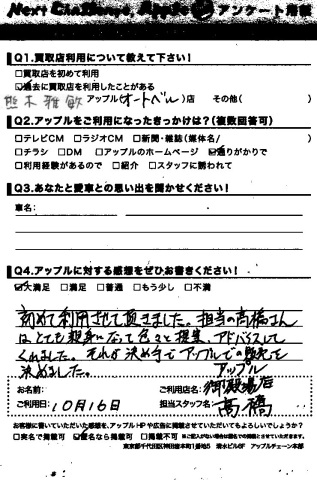 Next Challenge, Apple アンケート用紙
Q1.買取店利用について教えて下さい!
□買取店を初めて利用
☑過去に買取店を利用したことがある
アップル(オートベル)店 その他( )
Q2.アップルをご利用になったきっかけは?(複数回答可)
□テレビCM □ラジオCM □新聞・雑誌(媒体名/ )
□チラシ □DM □アップルのホームページ ☑通りがかりで
□利用経験があるので □紹介 □スタッフに誘われて
Q3.あなたと愛車との思い出を聞かせください!
車名:
Q4.アップルに対する感想をぜひお書きください!
☑大満足 □満足 □普通 □もう少し □不満
初めて利用させて頂きました。担当の高橋さん
はとても親身になって色々と提案、アドバイスして
くれました。それが決め手でアップルでの販売を
決めました。
お名前: ご利用店名:アップル御殿場店
ご利用日:10月16日 担当スタッフ名:高橋
お客様に書いていただいた感想を、アップルHPや広告に掲載させていただいてもよろしいでしょうか?
□実名で掲載可 ☑匿名なら掲載可 □掲載不可 ※ご記入がない場合は匿名での掲載とさせていただきます。
東京都千代田区神田岩本町1番地5 清水ビル5F アップルチェーン本部